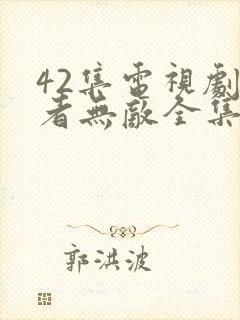 42集電視劇
者無敵全集
郭洪波